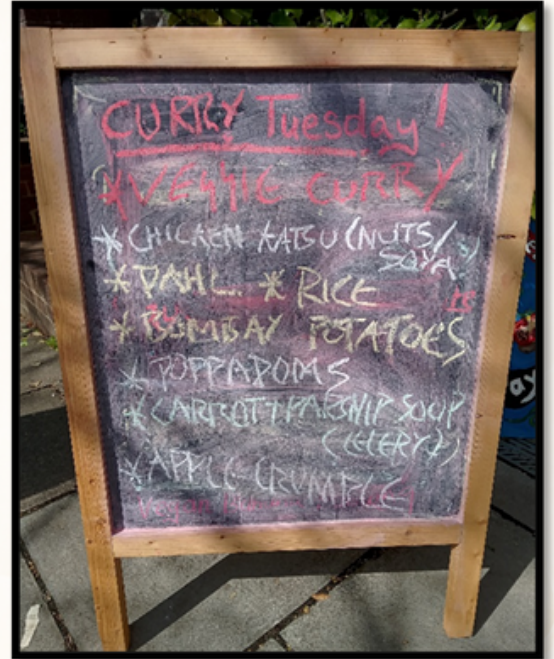 CURRY Tuesday!
*VEGGIE CURRY
*CHICKEN KATSU (NUTS/
SOYA)
*DAHL *RICE
*BOMBAY POTATOES
*POPPADOMS
*CARROT+PARSNIP SOUP
(CELERY)
*APPLE CRUMBLE
Vegan